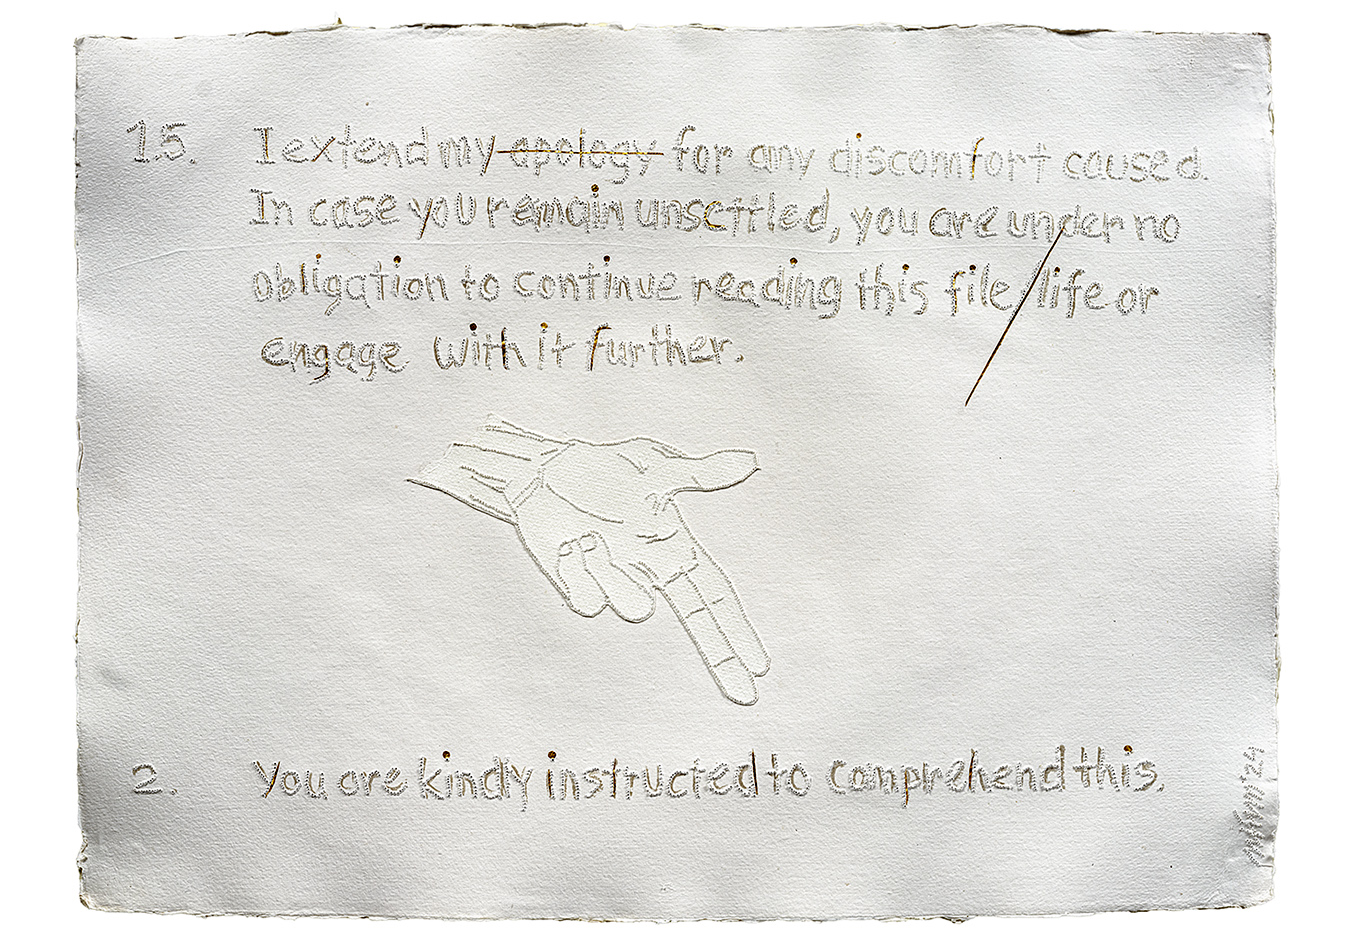 15. I extend my apology for any discomfort caused.
In case you remain unsettled, you are under no
obligation to continue reading this file/life or
engage with it further.
2. You are kindly instructed to comprehend this.
'24